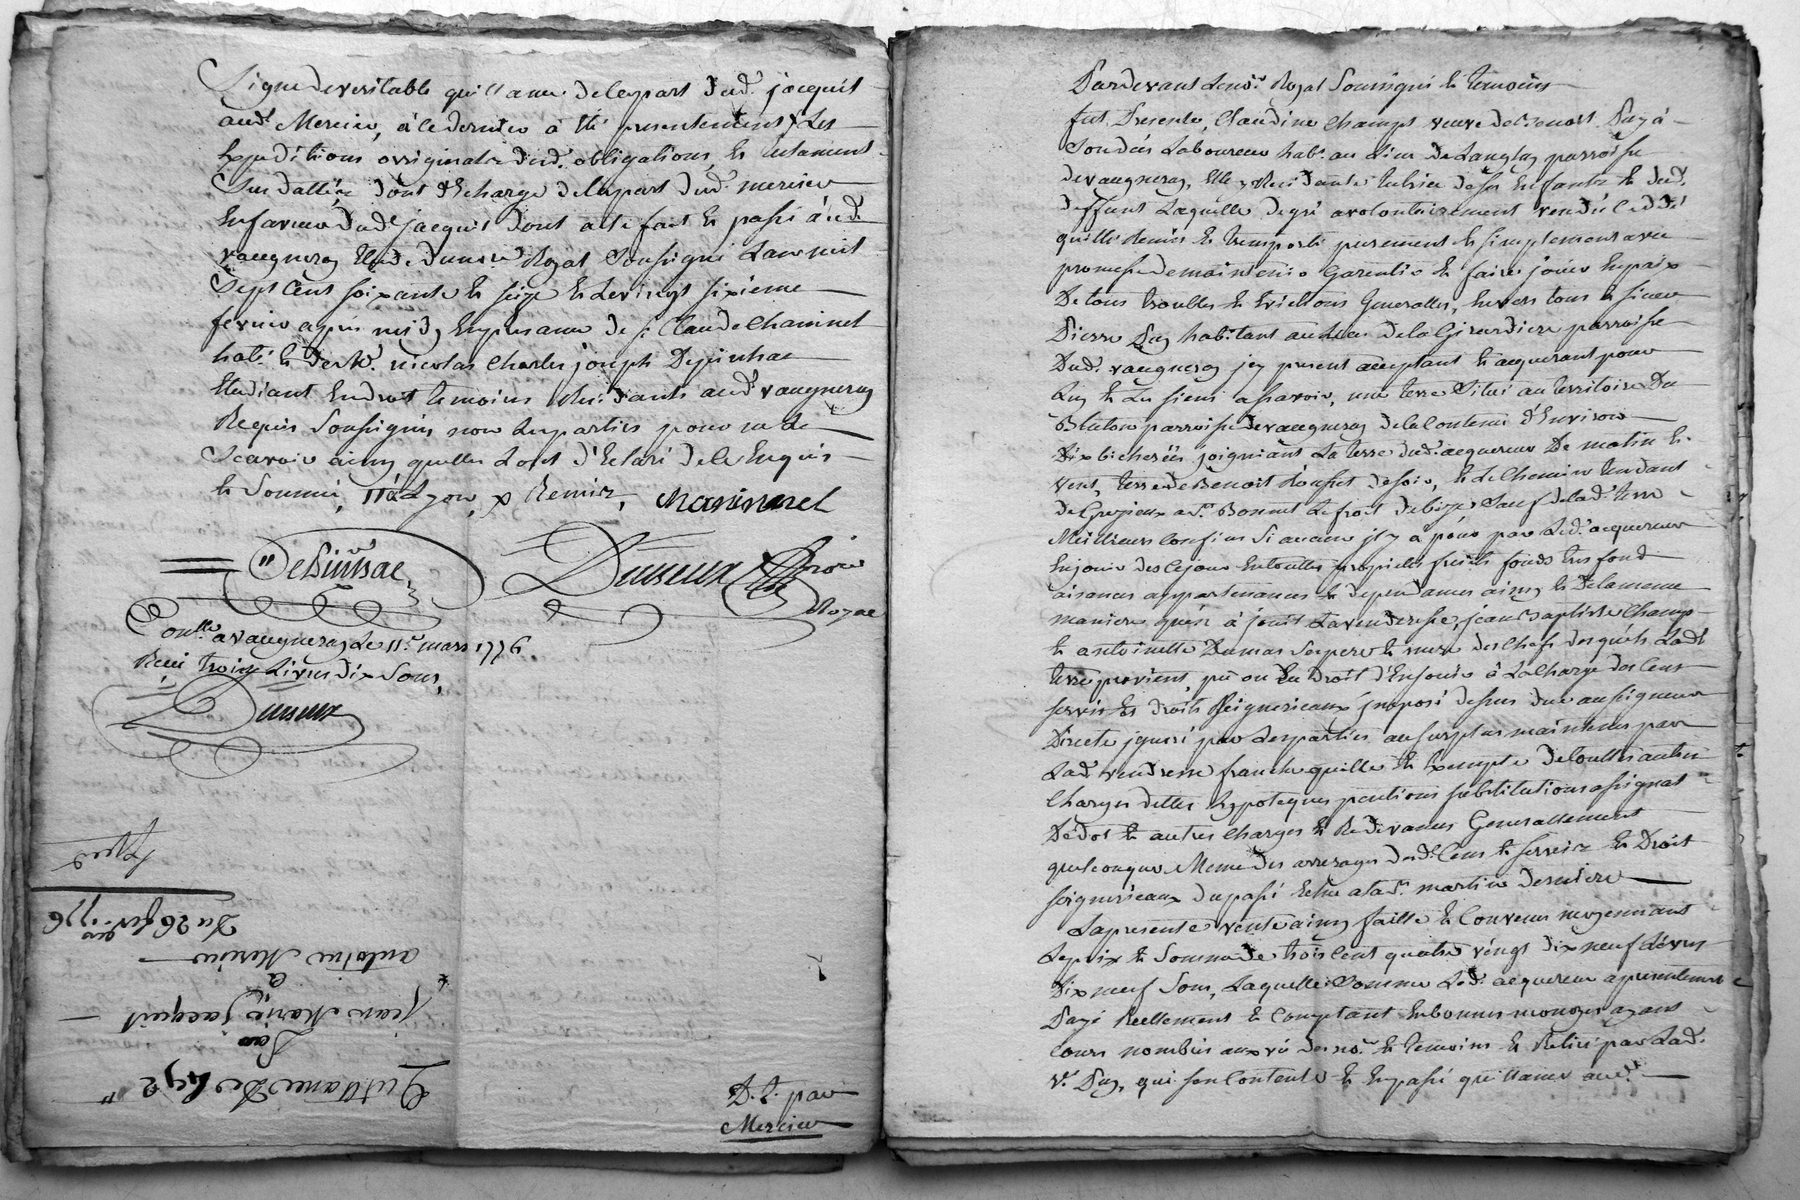 Signe de veritable quittance de la part dud. jacquit
aud. Mercier, à ce dernier à été presentement les
Expeditions originales dud. obligations, et testament
Sus datté, dont decharge de la part dud. mercier
En faveur dud. jacquit dont acte fait et passé aud.
vaugneray Etude du nore Royal Soussigné Lan mil
Sept Cent soixante et seize et le vingt sixieme
fevrier après midy En presence de s. Claude Chaninel
habt. et de Me. nicolas Charles joseph Depinhac
Etudiant En droit temoins residants aud. vaugneray
Requis Soussignés non les parties pour ne le
Scavoir ainsy quelles l'ont d'Eclaré de ce Enquis
et Sommé, à Lyon, Remis, Chaninel
DePinhac Duseux noire
Royal
Conllé a vaugneray Le 11e. mars 1776
Reçu treize Livres dix Sous,
Duseux
D. Q. par
Mercier
Quittance De 492
Par
jean Marie jacquit
a
antoine Mercier
Du 26 fevrier 1776
Exped
Pardevant Le nore. Royal Soussigné et temoins
fut Presente, Claudine Champt veuve de Benoit Puy à
Son decès Laboureur habt. au Lieu de Langlay parroisse
de vaugneray, Elle y Residante tutrice de ses Enfants et dud.
deffunt Laquelle de gré a volontairement vendu cedé
quitté Remis et transporté purement et simplement avec
promesse de maintenir Garentir et faire jouir En paix
De tous troubles et Evictions Generalles, Envers tous à sieur
Pierre Puy habitant au Lieu de la Girardiere parroisse
Dud. vaugneray jcy present acceptant et acquerant pour
Luy et Les siens assavoir, une terre Située au territoire Du
Bluton parroisse de vaugneray de la Contenue d'Environ
Dix bicherées joignant La terre dud. acquereur De matin et
vent, terre de Benoit de soir, et le Chemin tendant
de Grezieux a St. Bonnet Le froid de bize Sauf de lad. terre
Meilleurs Confins Si aucun jl y à pour par Led. acquereur
En jouir des ce jour En toutte proprieté fruits fonds tres fond
aisances appartenances et dependances ainsy et de la meme
maniere qu'en à jouit La venderesse, jean Baptiste Champt
et antoinette Dumas Ses pere et mere des Chefs desquels Lad.
terre provient pu ou En droit d'En jouir à La Charge des Cens
servis Et droits Seigneuriaux jmposé dessus due au seigneur
Directe jgnoré par Les parties au surplus maintenus par
Lad. vendresse franche quitte et Exempte de touttes autres
Charges dettes hypoteques pentions substitutions assignat
De dot et autres Charges et Redevances Generallement
quelconque Meme des arrerages desd. Cens et servis et Droit
seigneuriaux du passé Echu a la St. martin derniere
La presente vente ainsy faitte et Convenue moyennant
Le prix et Somme de trois Cent quatre vingt dix neuf Livres
Dix neuf Sous, Laquelle Somme Led. acquereur a presentement
Payé Reellement et Comptant En bonnes monoyes ayant
Cours nombrées aux vû des nore. et temoins et Retiré par Lad.
ve. Puy, qui sen Contente et En passe quittance aud.